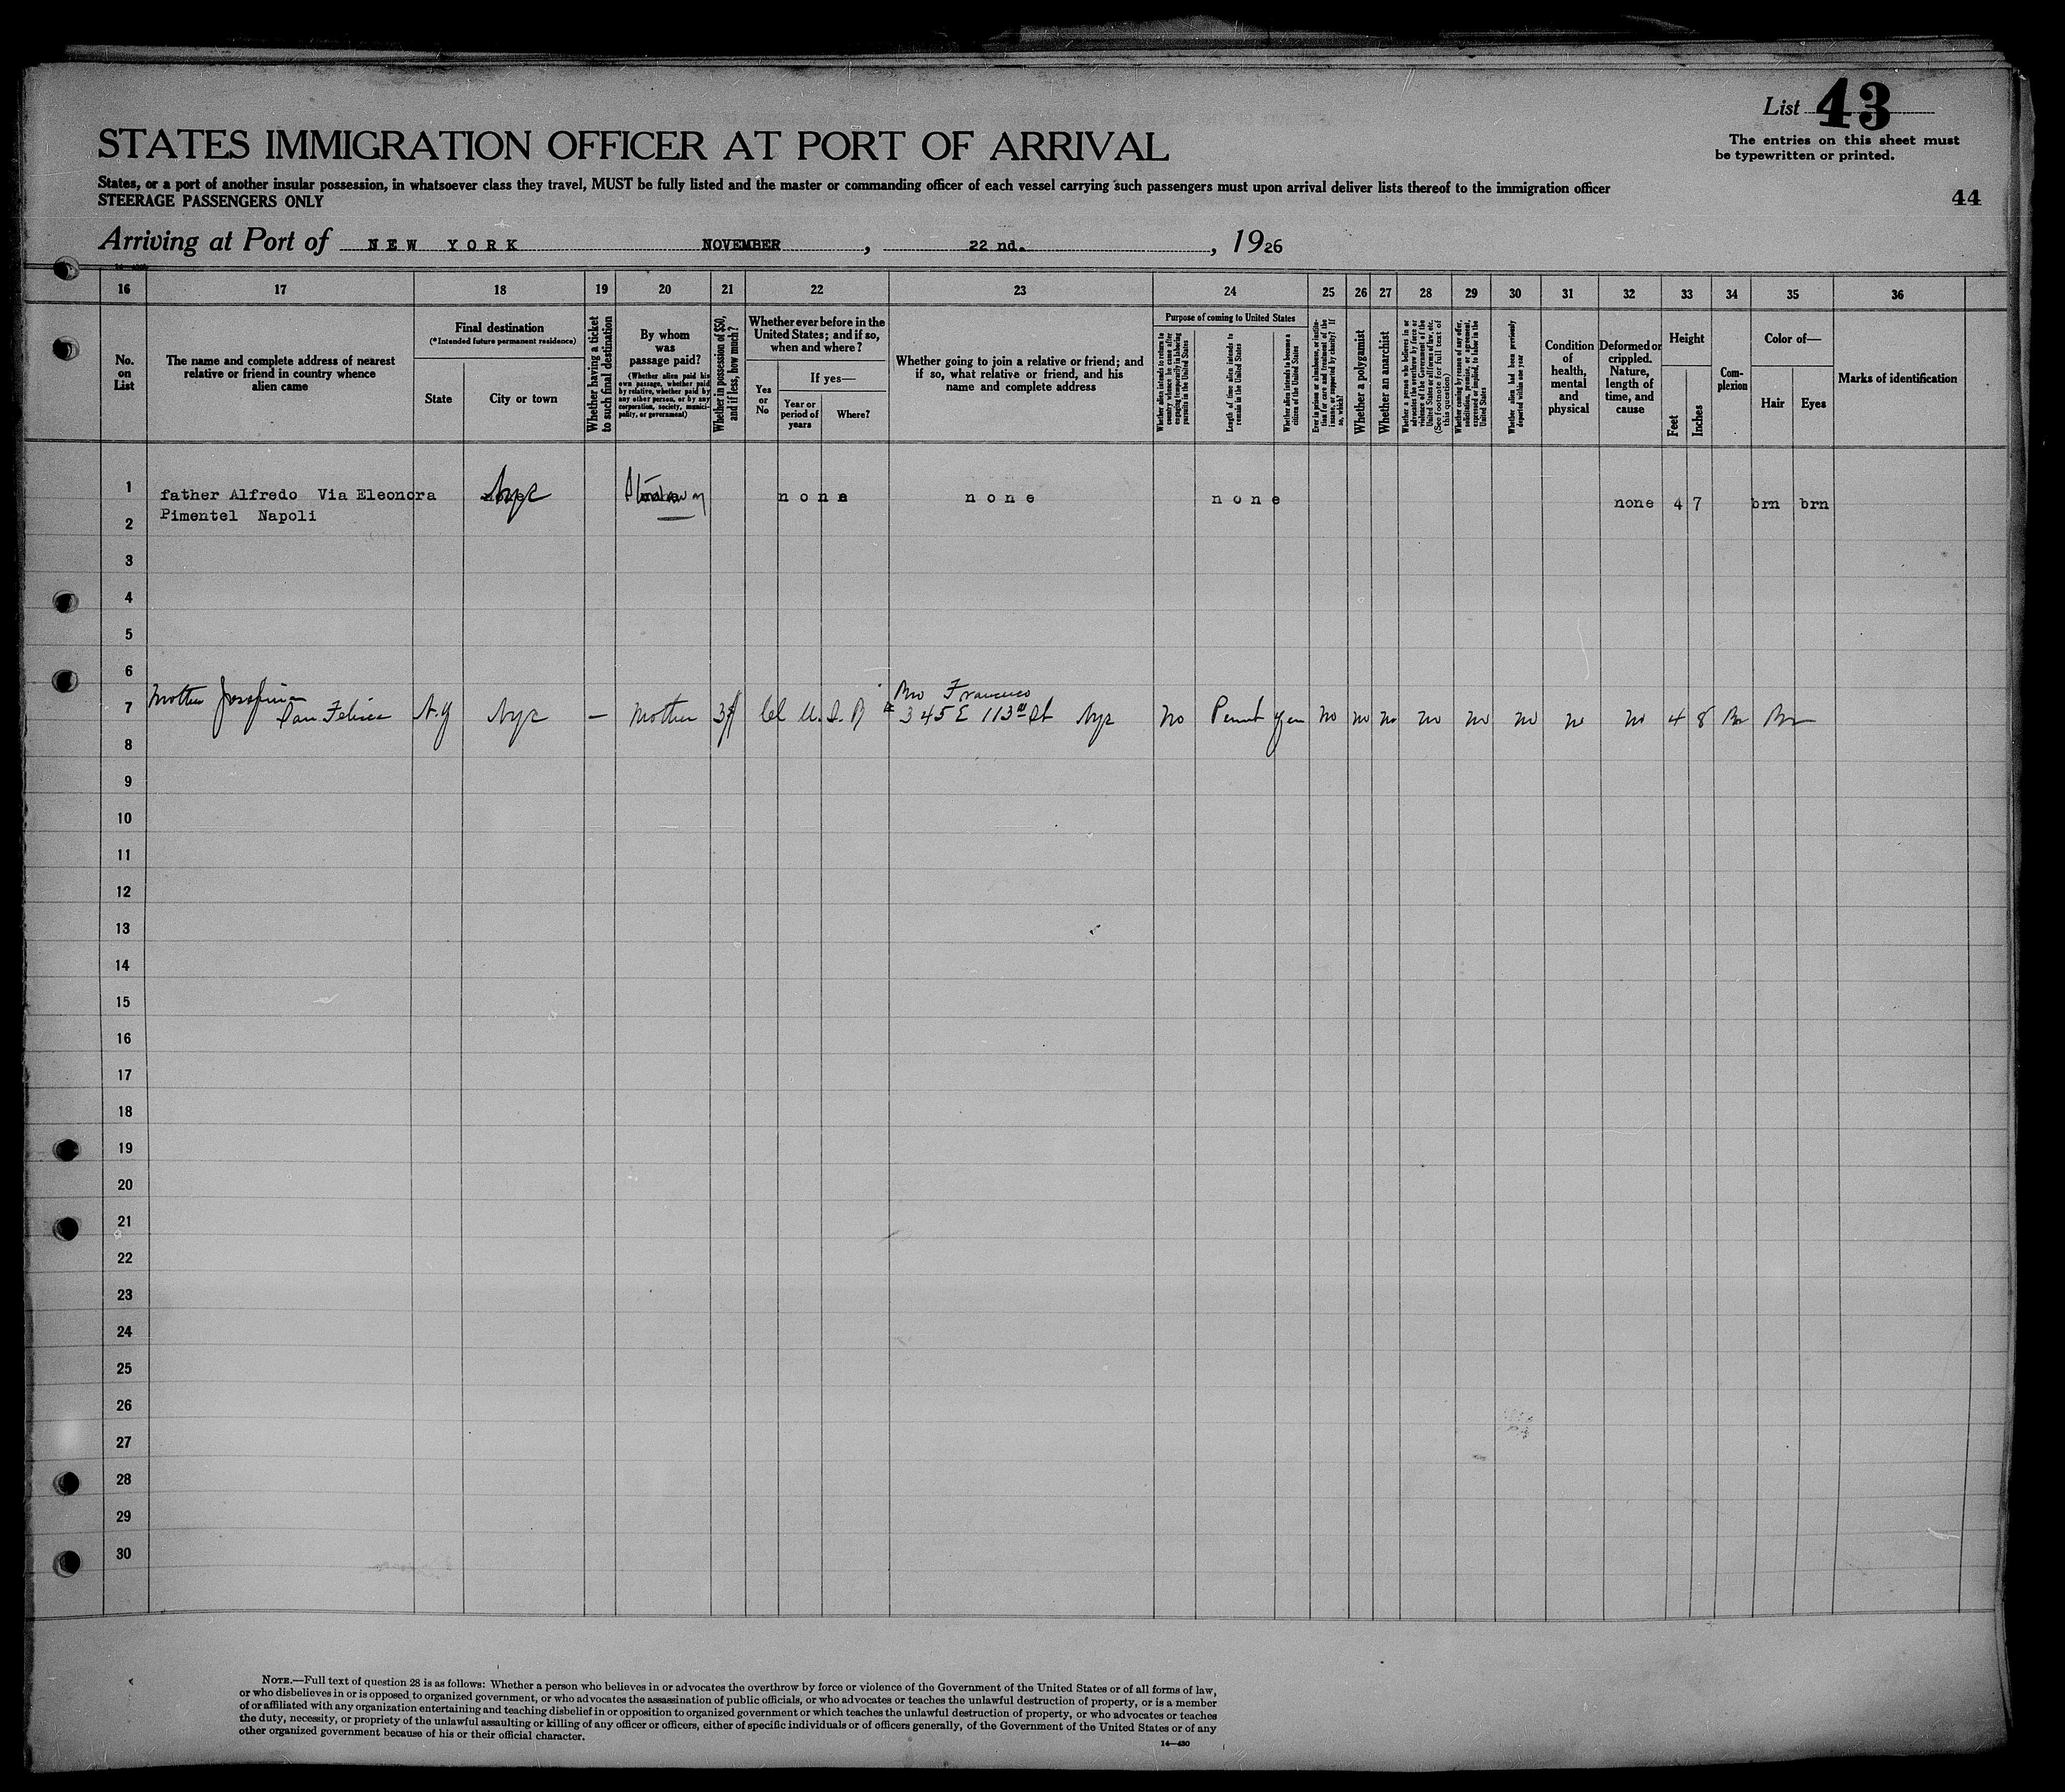 List 43
The entries on this sheet must
be typewritten or printed.
STATES IMMIGRATION OFFICER AT PORT OF ARRIVAL
States, or a port of another insular possession, in whatsoever class they travel, MUST be fully listed and the master or commanding officer of each vessel carrying such passengers must upon arrival deliver lists thereof to the immigration officer
STEERAGE PASSENGERS ONLY
44
Arriving at Port of NEW YORK NOVEMBER, 22 nd., 1926
16 17 18 19 20 21 22 23 24 25 26 27 28 29 30 31 32 33 34 35 36
No. on List
The name and complete address of nearest
relative or friend in country whence
alien came
Final destination
(*Intended future permanent residence)
State
City or town
Whether having a ticket
to such final destination
By whom
was
passage paid?
(Whether alien paid his
own passage, whether paid
by relative, whether paid by
any other person, or by any
corporation, society, munici-
pality, or government)
Whether in possession of $50,
and if less, how much?
Whether ever before in the
United States; and if so,
when and where?
Yes
or
No
If yes—
Year or
period of
years
Where?
Whether going to join a relative or friend; and
if so, what relative or friend, and his
name and complete address
Purpose of coming to United States
Whether alien intends to return to
country whence he came after
engaging temporarily in laboring
pursuits in the United States
Length of time alien intends to
remain in the United States
Whether alien intends to become a
citizen of the United States
Ever in prison or almshouse, or institu-
tion for care and treatment of the
insane, or supported by charity? If
so, which?
Whether a polygamist
Whether an anarchist
Whether a person who believes in or
advocates the overthrow by force or
violence of the Government of the
United States or all forms of law, etc.
(See footnote for full text of
this question)
Whether coming by reason of any offer,
solicitation, promise, or agreement,
expressed or implied, to labor in the
United States
Whether alien had been previously
deported within one year
Condition
of
health,
mental
and
physical
Deformed or
crippled.
Nature,
length of
time, and
cause
Height
Feet
Inches
Com-
plexion
Color of—
Hair
Eyes
Marks of identification
1 father Alfredo Via Eleonora Nyc none none none none 4 7 brn brn
2 Pimentel Napoli
3
4
5
6
Mother Josefina Bro Francisco
7 San Felices N.Y Nyc — Mother U.S. 345 E 113 St Nyc No Permt yes no no no no no no no no 4 8 Br Br
8
9
10
11
12
13
14
15
16
17
18
19
20
21
22
23
24
25
26
27
28
29
30
NOTE.—Full text of question 28 is as follows: Whether a person who believes in or advocates the overthrow by force or violence of the Government of the United States or of all forms of law,
or who disbelieves in or is opposed to organized government, or who advocates the assassination of public officials, or who advocates or teaches the unlawful destruction of property, or is a member
of or affiliated with any organization entertaining and teaching disbelief in or opposition to organized government or which teaches the unlawful destruction of property, or who advocates or teaches
the duty, necessity, or propriety of the unlawful assaulting or killing of any officer or officers, either of specific individuals or of officers generally, of the Government of the United States or of any
other organized government because of his or their official character.
14—430